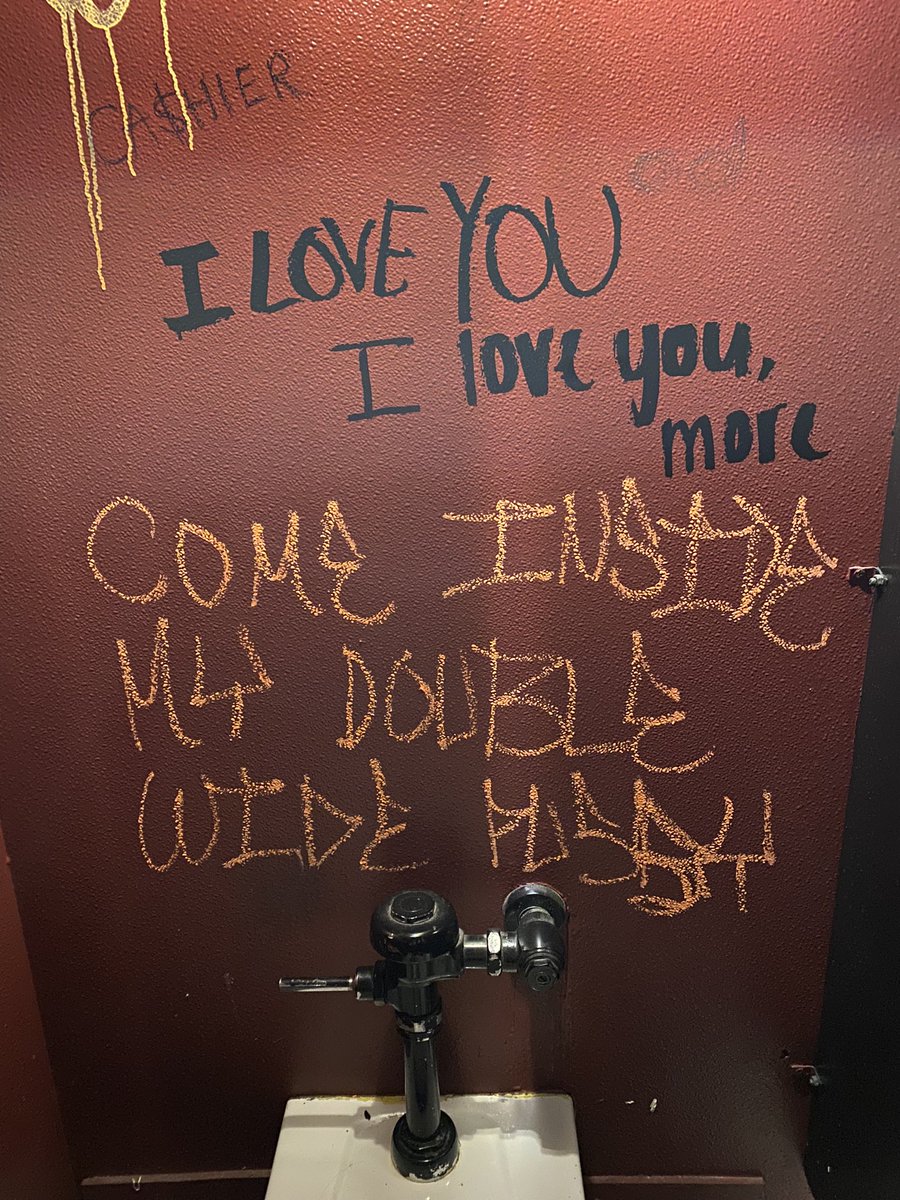 CA$HIER
I LOVE YOU
I love you,
more
COME INSIDE
MY DOUBLE
WIDE PUSSY